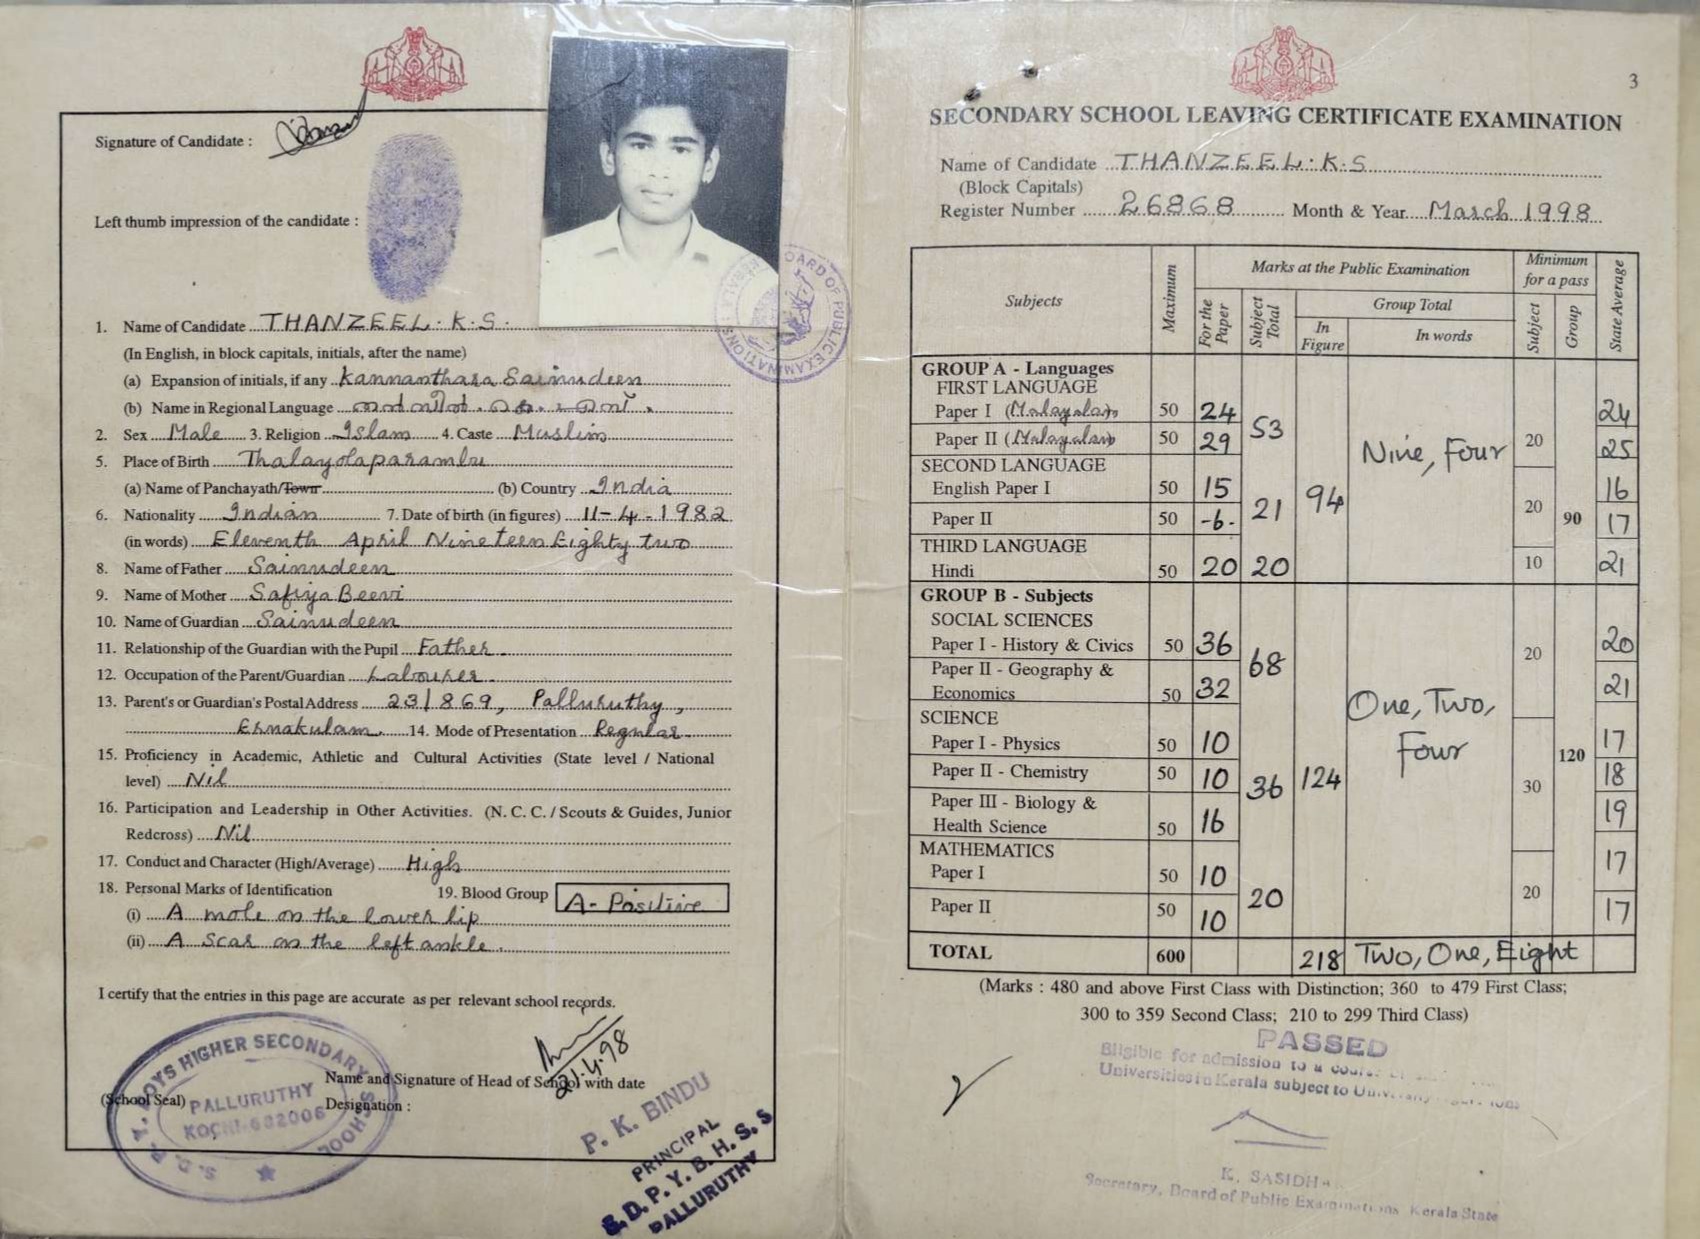 Signature of Candidate :
Left thumb impression of the candidate :
1. Name of Candidate THANZEEL. K. S.
(In English, in block capitals, initials, after the name)
(a) Expansion of initials, if any Kannanthara Sainudeen
(b) Name in Regional Language
2. Sex Male 3. Religion Islam 4. Caste Muslim
5. Place of Birth Thalayolaparambu
(a) Name of Panchayath/Town (b) Country India
6. Nationality Indian 7. Date of birth (in figures) 11-4-1982
(in words) Eleventh April Nineteen Eighty two
8. Name of Father Sainudeen
9. Name of Mother Safiya Beevi
10. Name of Guardian Sainudeen
11. Relationship of the Guardian with the Pupil Father
12. Occupation of the Parent/Guardian Labourer
13. Parent's or Guardian's Postal Address 23/869, Palluruthy,
Ernakulam. 14. Mode of Presentation Regular
15. Proficiency in Academic, Athletic and Cultural Activities (State level / National
level) Nil
16. Participation and Leadership in Other Activities. (N. C. C. / Scouts & Guides, Junior
Redcross) Nil
17. Conduct and Character (High/Average) High
18. Personal Marks of Identification 19. Blood Group A- Positive
(i) A mole on the lower lip
(ii) A scar on the left ankle.
I certify that the entries in this page are accurate as per relevant school records.
21.4.98
Name and Signature of Head of School with date
(School Seal) Designation :
BOYS HIGHER SECONDARY SCHOOL
PALLURUTHY
KOCHI-682006
P. K. BINDU
PRINCIPAL
S. D. P. Y. B. H. S. S
PALLURUTHY
BOARD OF PUBLIC EXAMINATIONS
3
SECONDARY SCHOOL LEAVING CERTIFICATE EXAMINATION
Name of Candidate THANZEEL. K. S
(Block Capitals)
Register Number 26868 Month & Year March 1998
Subjects Maximum Marks at the Public Examination Minimum for a pass State Average
For the Paper Subject Total Group Total Subject Group
In Figure In words
GROUP A - Languages
FIRST LANGUAGE
Paper I (Malayalam) 50 24 53 24
Paper II (Malayalam) 50 29 20 25
SECOND LANGUAGE
English Paper I 50 15 21 94 Nine, Four 16
Paper II 50 -6- 20 90 17
THIRD LANGUAGE
Hindi 50 20 20 10 21
GROUP B - Subjects
SOCIAL SCIENCES
Paper I - History & Civics 50 36 68 20 20
Paper II - Geography &
Economics 50 32 21
SCIENCE
Paper I - Physics 50 10 120 17
Paper II - Chemistry 50 10 36 124 One, Two, Four 30 18
Paper III - Biology &
Health Science 50 16 19
MATHEMATICS
Paper I 50 10 20 20 17
Paper II 50 10 17
TOTAL 600 218 Two, One, Eight
(Marks : 480 and above First Class with Distinction; 360 to 479 First Class;
300 to 359 Second Class; 210 to 299 Third Class)
PASSED
Eligible for admission to a course
Universities in Kerala subject to
K. SASIDH
Secretary, Board of Public Examinations Kerala State